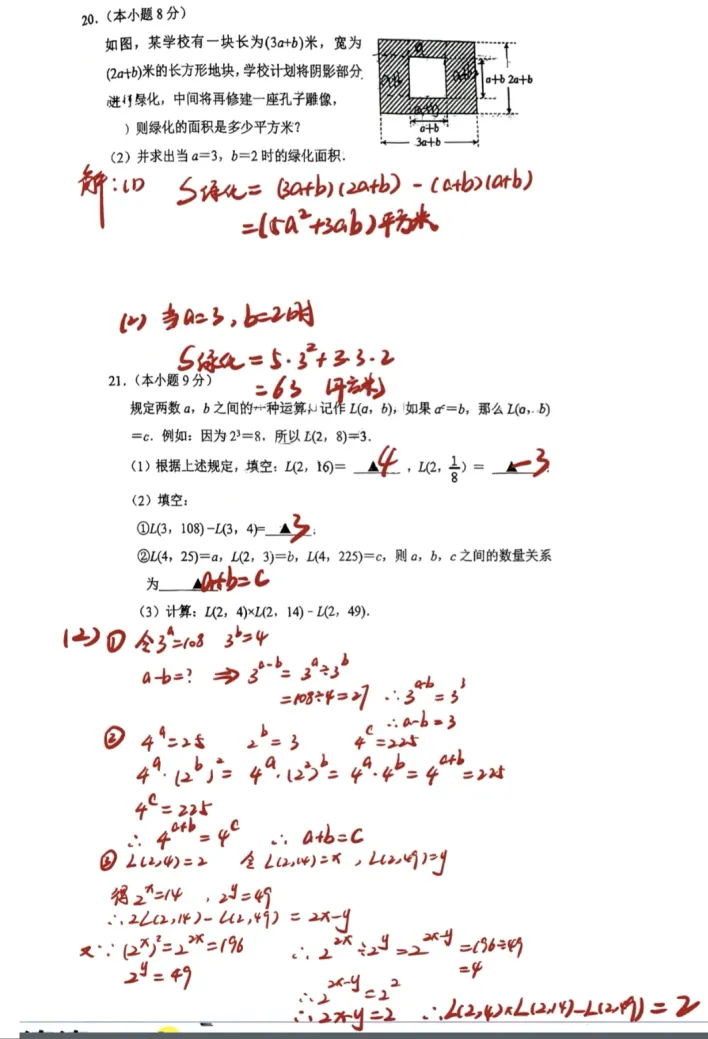 20.（本小题8分）
如图，某学校有一块长为(3a+b)米，宽为
(2a+b)米的长方形地块，学校计划将阴影部分
进行绿化，中间将再修建一座孔子雕像，
）则绿化的面积是多少平方米？
（2）并求出当a=3，b=2时的绿化面积.
a+b 2a+b
a+b
3a+b
解：(1) S绿化 = (3a+b)(2a+b) - (a+b)(a+b)
=(5a²+3ab)平方米
(2) 当a=3，b=2时
S绿化 = 5·3²+3·3·2
=63 (平方米)
21.（本小题9分）
规定两数a，b之间的一种运算，记作L(a，b)，如果aᶜ=b，那么L(a，b)
=c. 例如：因为2³=8，所以L(2，8)=3.
（1）根据上述规定，填空：L(2，16)= ▲4，L(2，1/8) = ▲-3.
（2）填空：
①L(3，108)-L(3，4)= ▲3；
②L(4，25)=a，L(2，3)=b，L(4，225)=c，则a，b，c之间的数量关系
为 ▲a+b=c
（3）计算：L(2，4)×L(2，14)-L(2，49).
(2) ① 令3ᵃ=108 3ᵇ=4
a-b=? ⇒ 3ᵃ⁻ᵇ=3ᵃ÷3ᵇ
=108÷4=27 ∴3ᵃ⁻ᵇ=3³
∴a-b=3
② 4ᵃ=25 2ᵇ=3 4ᶜ=225
4ᵃ·(2ᵇ)²=4ᵃ·(2²)ᵇ=4ᵃ·4ᵇ=4ᵃ⁺ᵇ=225
4ᶜ=225
∴4ᵃ⁺ᵇ=4ᶜ ∴a+b=c
③ L(2,4)=2 令L(2,14)=x，L(2,49)=y
得2ˣ=14，2ʸ=49
∴2L(2,14)-L(2,49)=2x-y
又∵(2ˣ)²=2²ˣ=196 ∴2²ˣ÷2ʸ=2²ˣ⁻ʸ=196÷49
2ʸ=49 =4
∴2²ˣ⁻ʸ=2²
∴2x-y=2 ∴L(2,4)×L(2,14)-L(2,49)=2